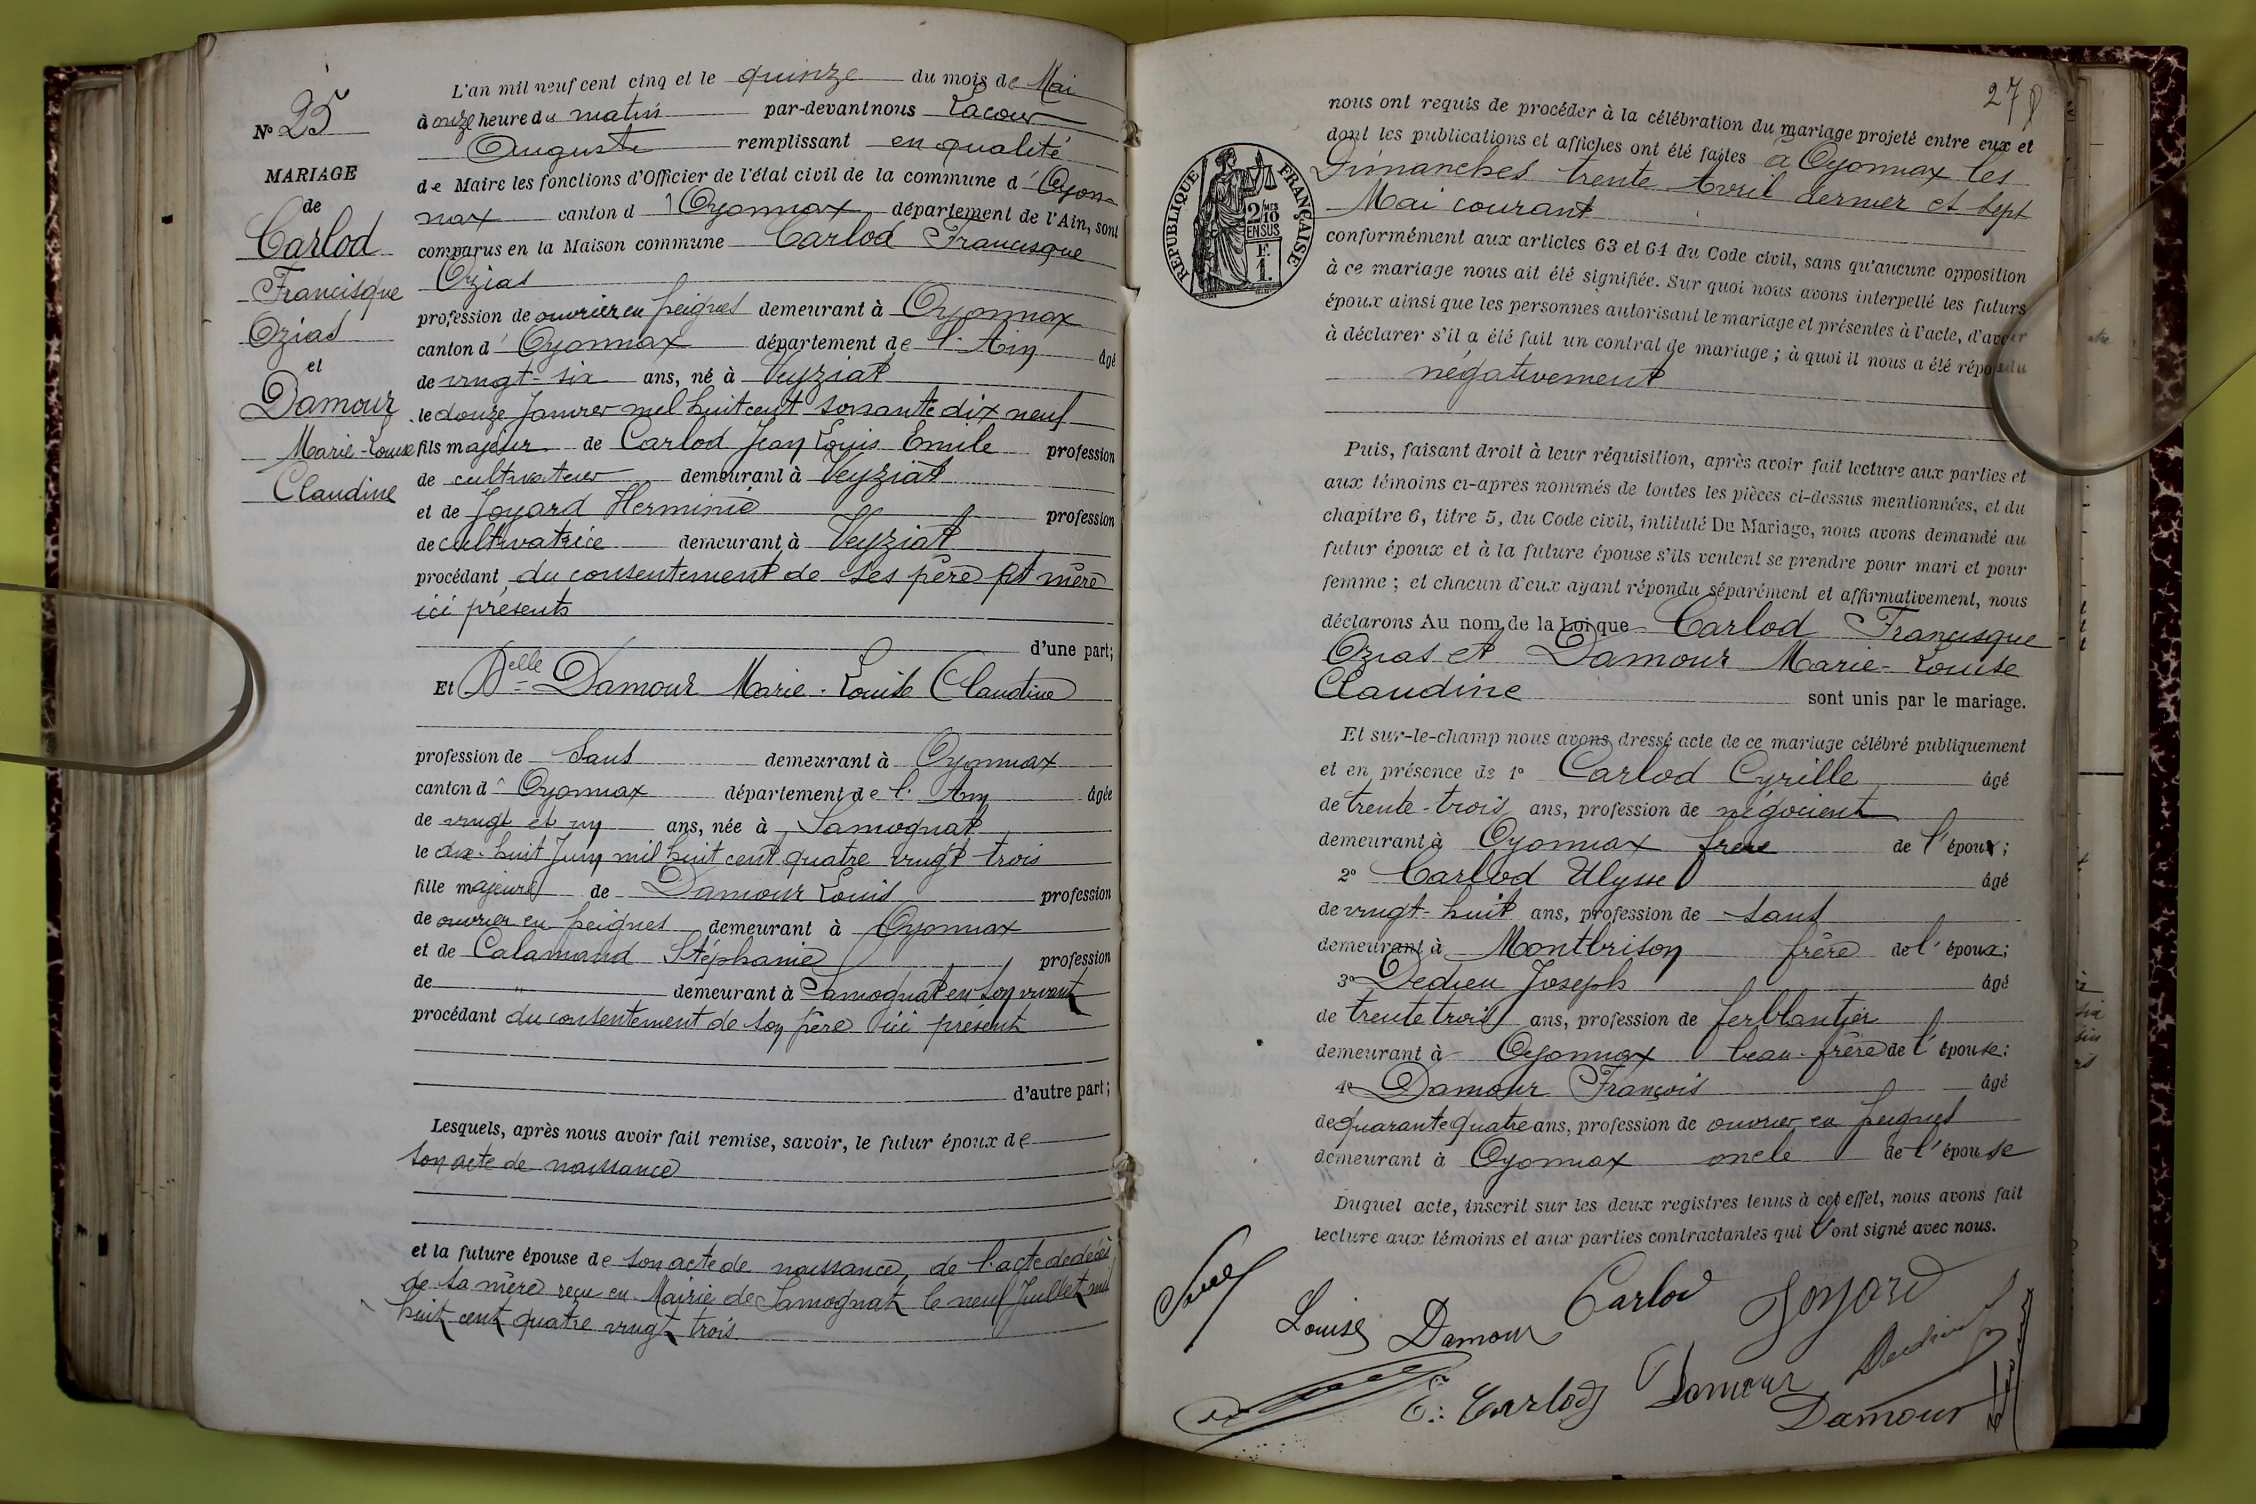 N° 25
MARIAGE
de
Carlod
Francisque
Ozias
et
Damour
Marie-Louise
Claudine
L'an mil neuf cent cinq et le quinze du mois de Mai
à onze heure du matin par-devant nous Lacour
Auguste remplissant en qualité
de Maire les fonctions d'Officier de l'état civil de la commune d'Oyon-
nax canton d'Oyonnax département de l'Ain, sont
comparus en la Maison commune Carlod Francisque
Ozias
profession de ouvrier en peignes demeurant à Oyonnax
canton d'Oyonnax département de l'Ain âgé
de vingt-six ans, né à Veyziat
le douze Janvier mil huit cent soixante dix neuf
fils majeur de Carlod Jean Louis Emile profession
de cultivateur demeurant à Veyziat
et de Joyard Herminie profession
de cultivatrice demeurant à Veyziat
procédant du consentement de ses père et mère
ici présents
d'une part;
Et Delle Damour Marie-Louise Claudine
profession de sans demeurant à Oyonnax
canton d'Oyonnax département de l'Ain âgée
de vingt et un ans, née à Samognat
le dix-huit Juin mil huit cent quatre vingt trois
fille majeure de Damour Louis profession
de ouvrier en peignes demeurant à Oyonnax
et de Calamand Stéphanie profession
de " demeurant à Samognat en son vivant
procédant du consentement de son père ici présent
d'autre part;
Lesquels, après nous avoir fait remise, savoir, le futur époux de
son acte de naissance
et la future épouse de son acte de naissance, de l'acte de décès
de sa mère reçu en Mairie de Samognat le neuf Juillet mil
huit cent quatre vingt trois
278
RÉPUBLIQUE FRANÇAISE
2/10 MES
EN SUS
F.
1.
nous ont requis de procéder à la célébration du mariage projeté entre eux et
dont les publications et affiches ont été faites à Oyonnax les
Dimanches trente Avril dernier et sept
Mai courant
conformément aux articles 63 et 64 du Code civil, sans qu'aucune opposition
à ce mariage nous ait été signifiée. Sur quoi nous avons interpellé les futurs
époux ainsi que les personnes autorisant le mariage et présentes à l'acte, d'avoir
à déclarer s'il a été fait un contrat de mariage; à quoi il nous a été répondu
négativement
Puis, faisant droit à leur réquisition, après avoir fait lecture aux parties et
aux témoins ci-après nommés de toutes les pièces ci-dessus mentionnées, et du
chapitre 6, titre 5, du Code civil, intitulé Du Mariage, nous avons demandé au
futur époux et à la future épouse s'ils veulent se prendre pour mari et pour
femme; et chacun d'eux ayant répondu séparément et affirmativement, nous
déclarons Au nom de la Loi que Carlod Francisque
Ozias et Damour Marie-Louise
Claudine sont unis par le mariage.
Et sur-le-champ nous avons dressé acte de ce mariage célébré publiquement
et en présence de 1° Carlod Cyrille âgé
de trente-trois ans, profession de négocient
demeurant à Oyonnax frère de l'époux;
2° Carlod Ulysse âgé
de vingt-huit ans, profession de sans
demeurant à Montbrison frère de l'époux;
3° Dedieu Joseph âgé
de trente trois ans, profession de ferblantier
demeurant à Oyonnax beau-frère de l'épouse;
4° Damour François âgé
de quarante quatre ans, profession de ouvrier en peignes
demeurant à Oyonnax oncle de l'épouse
Duquel acte, inscrit sur les deux registres tenus à cet effet, nous avons fait
lecture aux témoins et aux parties contractantes qui l'ont signé avec nous.
Louise Damour Carlod Joyard
E. Carlod Damour Dedieu
Damour